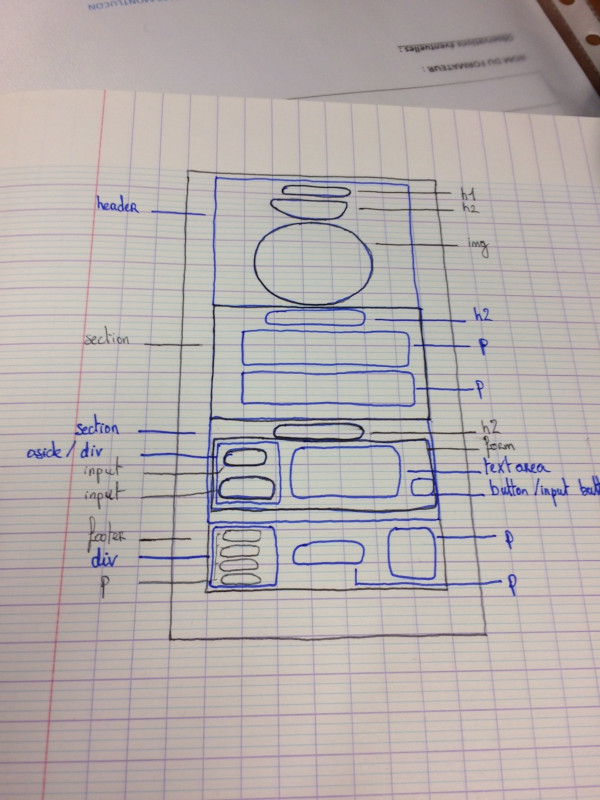 MONTLUCON
Observations éventuelles :
NOM DU FORMATEUR :
header
h1
h2
img
section
h2
p
p
section
h2
aside / div
form
input
text area
input
button / input butt
footer
p
div
p
p